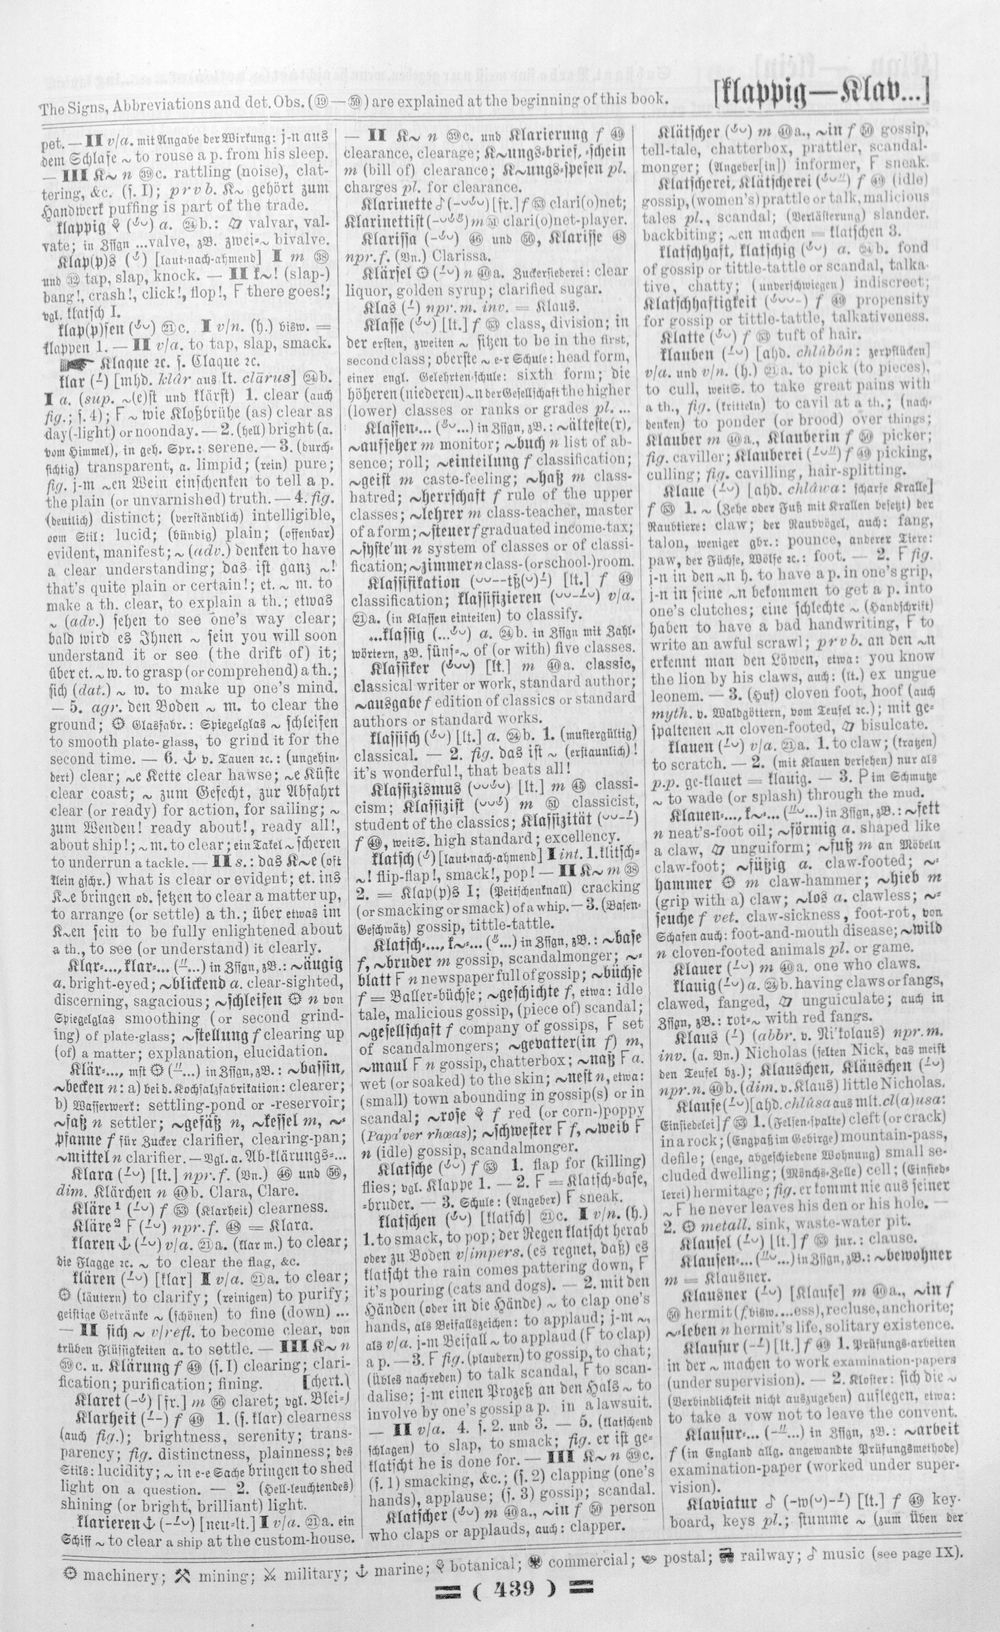 The Signs, Abbreviations and det. Obs. (⑲—㊾) are explained at the beginning of this book.
[klappig—Klav...]
pet. — II v/a. mit Angabe der Wirkung: j-n aus
dem Schlafe ~ to rouse a p. from his sleep.
— III K~ n ㊴c. rattling (noise), clat-
tering, &c. (s. I); prvb. K~ gehört zum
Handwerk puffing is part of the trade.
klappig ⚘ (⌣́⌣) a. ㉔b.: ▱ valvar, val-
vate; in Zssgn ...valve, zB. zwei=~ bivalve.
Klap(p)s (⌣́) [laut=nach=ahmend] I m ㊳
und ㉜ tap, slap, knock. — II k~! (slap-)
bang!, crash!, click!, flop!, F there goes!;
vgl. klatsch I.
klap(p)sen (⌣́⌣) ㉑c. I v/n. (h.) bisw. =
klappen 1. — II v/a. to tap, slap, smack.
☛ Klaque ꝛc. s. Claque ꝛc.
klar (–́) [mhd. klâr aus lt. clārus] ㉔b.
I a. (sup. ~(e)st und klärst) 1. clear (auch
fig.; s. 4); F ~ wie Kloßbrühe (as) clear as
day(-light) or noonday. — 2. (hell) bright (a.
vom Himmel), in geh. Spr.: serene. — 3. (durch-
sichtig) transparent, a. limpid; (rein) pure;
fig. j-m ~en Wein einschenken to tell a p.
the plain (or unvarnished) truth. — 4. fig.
(deutlich) distinct; (verständlich) intelligible,
vom Stil: lucid; (bündig) plain; (offenbar)
evident, manifest; ~ (adv.) denken to have
a clear understanding; das ist ganz ~!
that's quite plain or certain!; et. ~ m. to
make a th. clear, to explain a th.; etwas
~ (adv.) sehen to see one's way clear;
bald wird es Ihnen ~ sein you will soon
understand it or see (the drift of) it;
über et. ~ w. to grasp (or comprehend) a th.;
sich (dat.) ~ w. to make up one's mind.
— 5. agr. den Boden ~ m. to clear the
ground; ⚙ Glasfabr.: Spiegelglas ~ schleifen
to smooth plate-glass, to grind it for the
second time. — 6. ⚓ v. Tauen ꝛc.: (ungehin-
dert) clear; ~e Kette clear hawse; ~e Küste
clear coast; ~ zum Gefecht, zur Abfahrt
clear (or ready) for action, for sailing; ~
zum Wenden! ready about!, ready all!,
about ship!; ~ m. to clear; ein Takel ~ scheren
to underrun a tackle. — II s.: das K~e (oft
klein gschr.) what is clear or evident; et. ins
K~e bringen od. setzen to clear a matter up,
to arrange (or settle) a th.; über etwas im
K~en sein to be fully enlightened about
a th., to see (or understand) it clearly.
Klar=..., klar=... (–́...) in Zssgn, zB.: ~äugig
a. bright-eyed; ~blickend a. clear-sighted,
discerning, sagacious; ~schleifen ⚙ n von
Spiegelglas smoothing (or second grind-
ing) of plate-glass; ~stellung f clearing up
(of) a matter; explanation, elucidation.
Klär=..., mst ⚙ (–́...) in Zssgn, zB.: ~bassin,
~becken n: a) bei d. Kochsalzfabrikation: clearer;
b) Wasserwerk: settling-pond or -reservoir;
~faß n settler; ~gefäß n, ~kessel m, ~=
pfanne f für Zucker clarifier, clearing-pan;
~mittel n clarifier. — Vgl. a. Ab=klärungs=...
Klara (–́⌣) [lt.] npr. f. (Vn.) ㊻ und ㊿,
dim. Klärchen n ㊵b. Clara, Clare.
Kläre¹ (–́⌣) f ㊳ (Klarheit) clearness.
Kläre² F (–́⌣) npr. f. ㊽ = Klara.
klaren ⚓ (–́⌣) v/a. ㉑a. (klar m.) to clear;
die Flagge ꝛc. ~ to clear the flag, &c.
klären (–́⌣) [klar] I v/a. ㉑a. to clear;
⚙ (läutern) to clarify; (reinigen) to purify;
geistige Getränke ~ (schönen) to fine (down) ...
— II sich ~ v/refl. to become clear, von
trüben Flüssigkeiten a. to settle. — III K~ n
㊴c. u. Klärung f ㊾ (s. I) clearing; clari-
fication; purification; fining. [chert.\
Klaret (–⌣́) [fr.] m ㊱ claret; vgl. Blei=/
Klarheit (–́–) f ㊾ 1. (s. klar) clearness
(auch fig.); brightness, serenity; trans-
parency; fig. distinctness, plainness; des
Stils: lucidity; ~ in e-e Sache bringen to shed
light on a question. — 2. (Hell=leuchtendes)
shining (or bright, brilliant) light.
klarieren ⚓ (–⌣́⌣) [neu=lt.] I v/a. ㉑a. ein
Schiff ~ to clear a ship at the custom-house.
— II K~ n ㊴c. und Klarierung f ㊾
clearance, clearage; K~ungs=brief, =schein
m (bill of) clearance; K~ungs=spesen pl.
charges pl. for clearance.
Klarinette ♪ (–⌣⌣́⌣) [fr.] f ㊳ clari(o)net;
Klarinettist (–⌣⌣⌣́) m ㊶ clari(o)net-player.
Klarissa (–⌣́⌣) ㊻ und ㊿, Klarisse ㊽
npr. f. (Vn.) Clarissa.
Klärsel ⚙ (–́⌣) n ㊵a. Zuckersiederei: clear
liquor, golden syrup; clarified sugar.
Klas (–́) npr. m. inv. = Klaus.
Klasse (⌣́⌣) [lt.] f ㊳ class, division; in
der ersten, zweiten ~ sitzen to be in the first,
second class; oberste ~ e-r Schule: head form,
einer engl. Gelehrten=schule: sixth form; die
höheren (niederen) ~n der Gesellschaft the higher
(lower) classes or ranks or grades pl. ...
Klassen=... (⌣́⌣...) in Zssgn, zB.: ~älteste(r),
~aufseher m monitor; ~buch n list of ab-
sence; roll; ~einteilung f classification;
~geist m caste-feeling; ~haß m class-
hatred; ~herrschaft f rule of the upper
classes; ~lehrer m class-teacher, master
of a form; ~steuer f graduated income-tax;
~syste'm n system of classes or of classi-
fication; ~zimmer n class- (or school-)room.
Klassifikation (⌣⌣––tß(⌣)–́) [lt.] f ㊾
classification; klassifizieren (⌣⌣–́⌣) v/a.
㉑a. (in Klassen einteilen) to classify.
...klassig (...⌣́⌣) a. ㉔b. in Zssgn mit Zahl=
wörtern, zB. fünf=~ of (or with) five classes.
Klassiker (⌣́⌣⌣) [lt.] m ㊵a. classic,
classical writer or work, standard author;
~ausgabe f edition of classics or standard
authors or standard works.
klassisch (⌣́⌣) [lt.] a. ㉔b. 1. (mustergültig)
classical. — 2. fig. das ist ~ (erstaunlich)!
it's wonderful!, that beats all!
Klassizismus (⌣⌣⌣́⌣) [lt.] m ㊺ classi-
cism; Klassizist (⌣⌣⌣́) m ㊶ classicist,
student of the classics; Klassizität (⌣⌣⌣–́)
f ㊾, weitS. high standard; excellency.
klatsch (⌣́) [laut=nach=ahmend] I int. 1. klitsch=
~! flip-flap!, smack!, pop! — II K~ m ㊳
2. = Klap(p)s I; (Peitschenknall) cracking
(or smacking or smack) of a whip. — 3. (Basen=
Geschwätz) gossip, tittle-tattle.
Klatsch=..., k~=... (⌣́...) in Zssgn, zB.: ~base
f, ~bruder m gossip, scandalmonger; ~=
blatt F n newspaper full of gossip; ~büchse
f = Baller=büchse; ~geschichte f, etwa: idle
tale, malicious gossip, (piece of) scandal;
~gesellschaft f company of gossips, F set
of scandalmongers; ~gevatter(in f) m,
~maul F n gossip, chatterbox; ~naß F a.
wet (or soaked) to the skin; ~nest n, etwa:
(small) town abounding in gossip(s) or in
scandal; ~rose ⚘ f red (or corn-)poppy
(Papa'ver rhœas); ~schwester F f, ~weib F
n (idle) gossip, scandalmonger.
Klatsche (⌣́⌣) f ㊳ 1. flap for (killing)
flies; vgl. Klappe 1. — 2. F = Klatsch=base,
=bruder. — 3. Schule: (Angeber) F sneak.
klatschen (⌣́⌣) [klatsch] ㉑c. I v/n. (h.)
1. to smack, to pop; der Regen klatscht herab
oder zu Boden v/impers. (es regnet, daß) es
klatscht the rain comes pattering down, F
it's pouring (cats and dogs). — 2. mit den
Händen (oder in die Hände) ~ to clap one's
hands, als Beifallszeichen: to applaud; j-m ~,
als v/a. j-m Beifall ~ to applaud (F to clap)
a p. — 3. F fig. (plaudern) to gossip, to chat;
(Übles nachreden) to talk scandal, F to scan-
dalise; j-m einen Prozeß an den Hals ~ to
involve by one's gossip a p. in a lawsuit.
— II v/a. 4. s. 2. und 3. — 5. (klatschend
schlagen) to slap, to smack; fig. er ist ge=
klatscht he is done for. — III K~ n ㊴c.
(s. 1) smacking, &c.; (s. 2) clapping (one's
hands), applause; (s. 3) gossip; scandal.
Klatscher (⌣́⌣) m ㊵a., ~in f ㊿ person
who claps or applauds, auch: clapper.
Klätscher (⌣́⌣) m ㊵a., ~in f ㊿ gossip,
tell-tale, chatterbox, prattler, scandal-
monger; (Angeber[in]) informer, F sneak.
Klatscherei, Klätscherei (⌣⌣–́) f ㊾ (idle)
gossip, (women's) prattle or talk, malicious
tales pl., scandal; (Verlästerung) slander.
backbiting; ~en machen = klatschen 3.
klatschhaft, klatschig (⌣́⌣) a. ㉔b. fond
of gossip or tittle-tattle or scandal, talka-
tive, chatty; (unverschwiegen) indiscreet;
Klatschhaftigkeit (⌣́⌣⌣–) f ㊾ propensity
for gossip or tittle-tattle, talkativeness.
Klatte (⌣́⌣) f ㊳ tuft of hair.
klauben (–́⌣) [ahd. chlûbôn: zerpflücken]
v/a. und v/n. (h.) ㉑a. to pick (to pieces),
to cull, weitS. to take great pains with
a th., fig. (kritteln) to cavil at a th.; (nach=
denken) to ponder (or brood) over things;
Klauber m ㊵a., Klauberin f ㊿ picker;
fig. caviller; Klauberei (–⌣–́) f ㊾ picking,
culling; fig. cavilling, hair-splitting.
Klaue (–́⌣) [ahd. chlâwa: scharfe Kralle]
f ㊳ 1. ~ (Zehe oder Fuß mit Krallen besetzt) der
Raubtiere: claw; der Raubvögel, auch: fang,
talon, weniger gbr.: pounce, anderer Tiere:
paw, der Füchse, Wölfe ꝛc.: foot. — 2. F fig.
j-n in den ~n h. to have a p. in one's grip,
j-n in seine ~n bekommen to get a p. into
one's clutches; eine schlechte ~ (Handschrift)
haben to have a bad handwriting, F to
write an awful scrawl; prvb. an den ~n
erkennt man den Löwen, etwa: you know
the lion by his claws, auch: (lt.) ex ungue
leonem. — 3. (Huf) cloven foot, hoof (auch
myth. v. Waldgöttern, vom Teufel ꝛc.); mit ge=
spaltenen ~n cloven-footed, ▱ bisulcate.
klauen (–́⌣) v/a. ㉑a. 1. to claw; (kratzen)
to scratch. — 2. (mit Klauen versehen) nur als
p.p. ge=klauet = klauig. — 3. P im Schmutze
~ to wade (or splash) through the mud.
Klauen=..., k~=... (–́⌣...) in Zssgn, zB.: ~fett
n neat's-foot oil; ~förmig a. shaped like
a claw, ▱ unguiform; ~fuß m an Möbeln
claw-foot; ~füßig a. claw-footed; ~=
hammer ⚙ m claw-hammer; ~hieb m
(grip with a) claw; ~los a. clawless; ~=
seuche f vet. claw-sickness, foot-rot, von
Schafen auch: foot-and-mouth disease; ~wild
n cloven-footed animals pl. or game.
Klauer (–́⌣) m ㊵a. one who claws.
klauig (–́⌣) a. ㉔b. having claws or fangs,
clawed, fanged, ▱ unguiculate; auch in
Zssgn, zB.: rot=~ with red fangs.
Klaus (–́) (abbr. v. Ni'kolaus) npr. m.
inv. (a. Vn.) Nicholas (selten Nick, das meist
den Teufel bz.); Klauschen, Kläuschen (–́⌣)
npr. n. ㊵b. (dim. v. Klaus) little Nicholas.
Klause (–́⌣) [ahd. chlûsa aus mlt. cl(a)usa:
Einsiedelei] f ㊳ 1. (Felsen=spalte) cleft (or crack)
in a rock; (Engpaß im Gebirge) mountain-pass,
defile; (enge, abgeschiedene Wohnung) small se-
cluded dwelling; (Mönchs=Zelle) cell; (Einsied=
lerei) hermitage; fig. er kommt nie aus seiner
~ F he never leaves his den or his hole. —
2. ⚙ metall. sink, waste-water pit.
Klausel (–́⌣) [lt.] f ㊳ jur.: clause.
Klausen=... (–́⌣...) in Zssgn, zB.: ~bewohner
m = Klausner.
Klausner (–́⌣) [Klause] m ㊵a., ~in f
㊿ hermit (f, bisw. ...ess), recluse, anchorite;
~leben n hermit's life, solitary existence.
Klausur (–⌣́) [lt.] f ㊾ 1. Prüfungs=arbeiten
in der ~ machen to work examination-papers
(under supervision). — 2. Kloster: sich die ~
(Verbindlichkeit nicht auszugehen) auflegen, etwa:
to take a vow not to leave the convent.
Klausur=... (–⌣́...) in Zssgn, zB.: ~arbeit
f (in England allg. angewandte Prüfungsmethode)
examination-paper (worked under super-
vision).
Klaviatur ♪ (–w(⌣)–⌣́) [lt.] f ㊾ key-
board, keys pl.; stumme ~ (zum Üben der
⚙ machinery; ⚒ mining; ⚔ military; ⚓ marine; ⚘ botanical; commercial; postal; railway; ♪ music (see page IX).
= ( 439 ) =